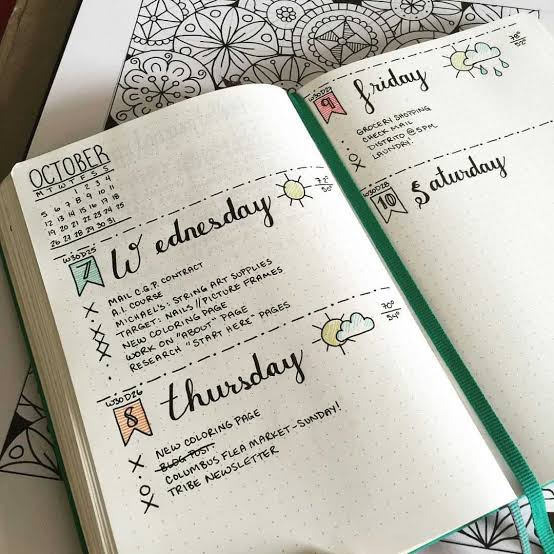 OCTOBER
M T W T F S S
1 2 3 4
5 6 7 8 9 10 11
12 13 14 15 16 17 18
19 20 21 22 23 24 25
26 27 28 29 30 31
W30D25
7 Wednesday
MAIL C.G.P. CONTRACT
A.I. COURSE
MICHAEL'S: STRING ART SUPPLIES
TARGET: NAILS // PICTURE FRAMES
NEW COLORING PAGE
WORK ON "ABOUT" PAGE
RESEARCH "START HERE" PAGES
W30D26
70°
54°
8 thursday
NEW COLORING PAGE
BLOG POST
COLUMBUS FLEA MARKET-SUNDAY!
TRIBE NEWSLETTER
W30D27
78°
52°
9 friday
GROCERY SHOPPING
CHECK MAIL
DISTRITO @ 5PM
LAUNDRY
W30D28
10 Saturday